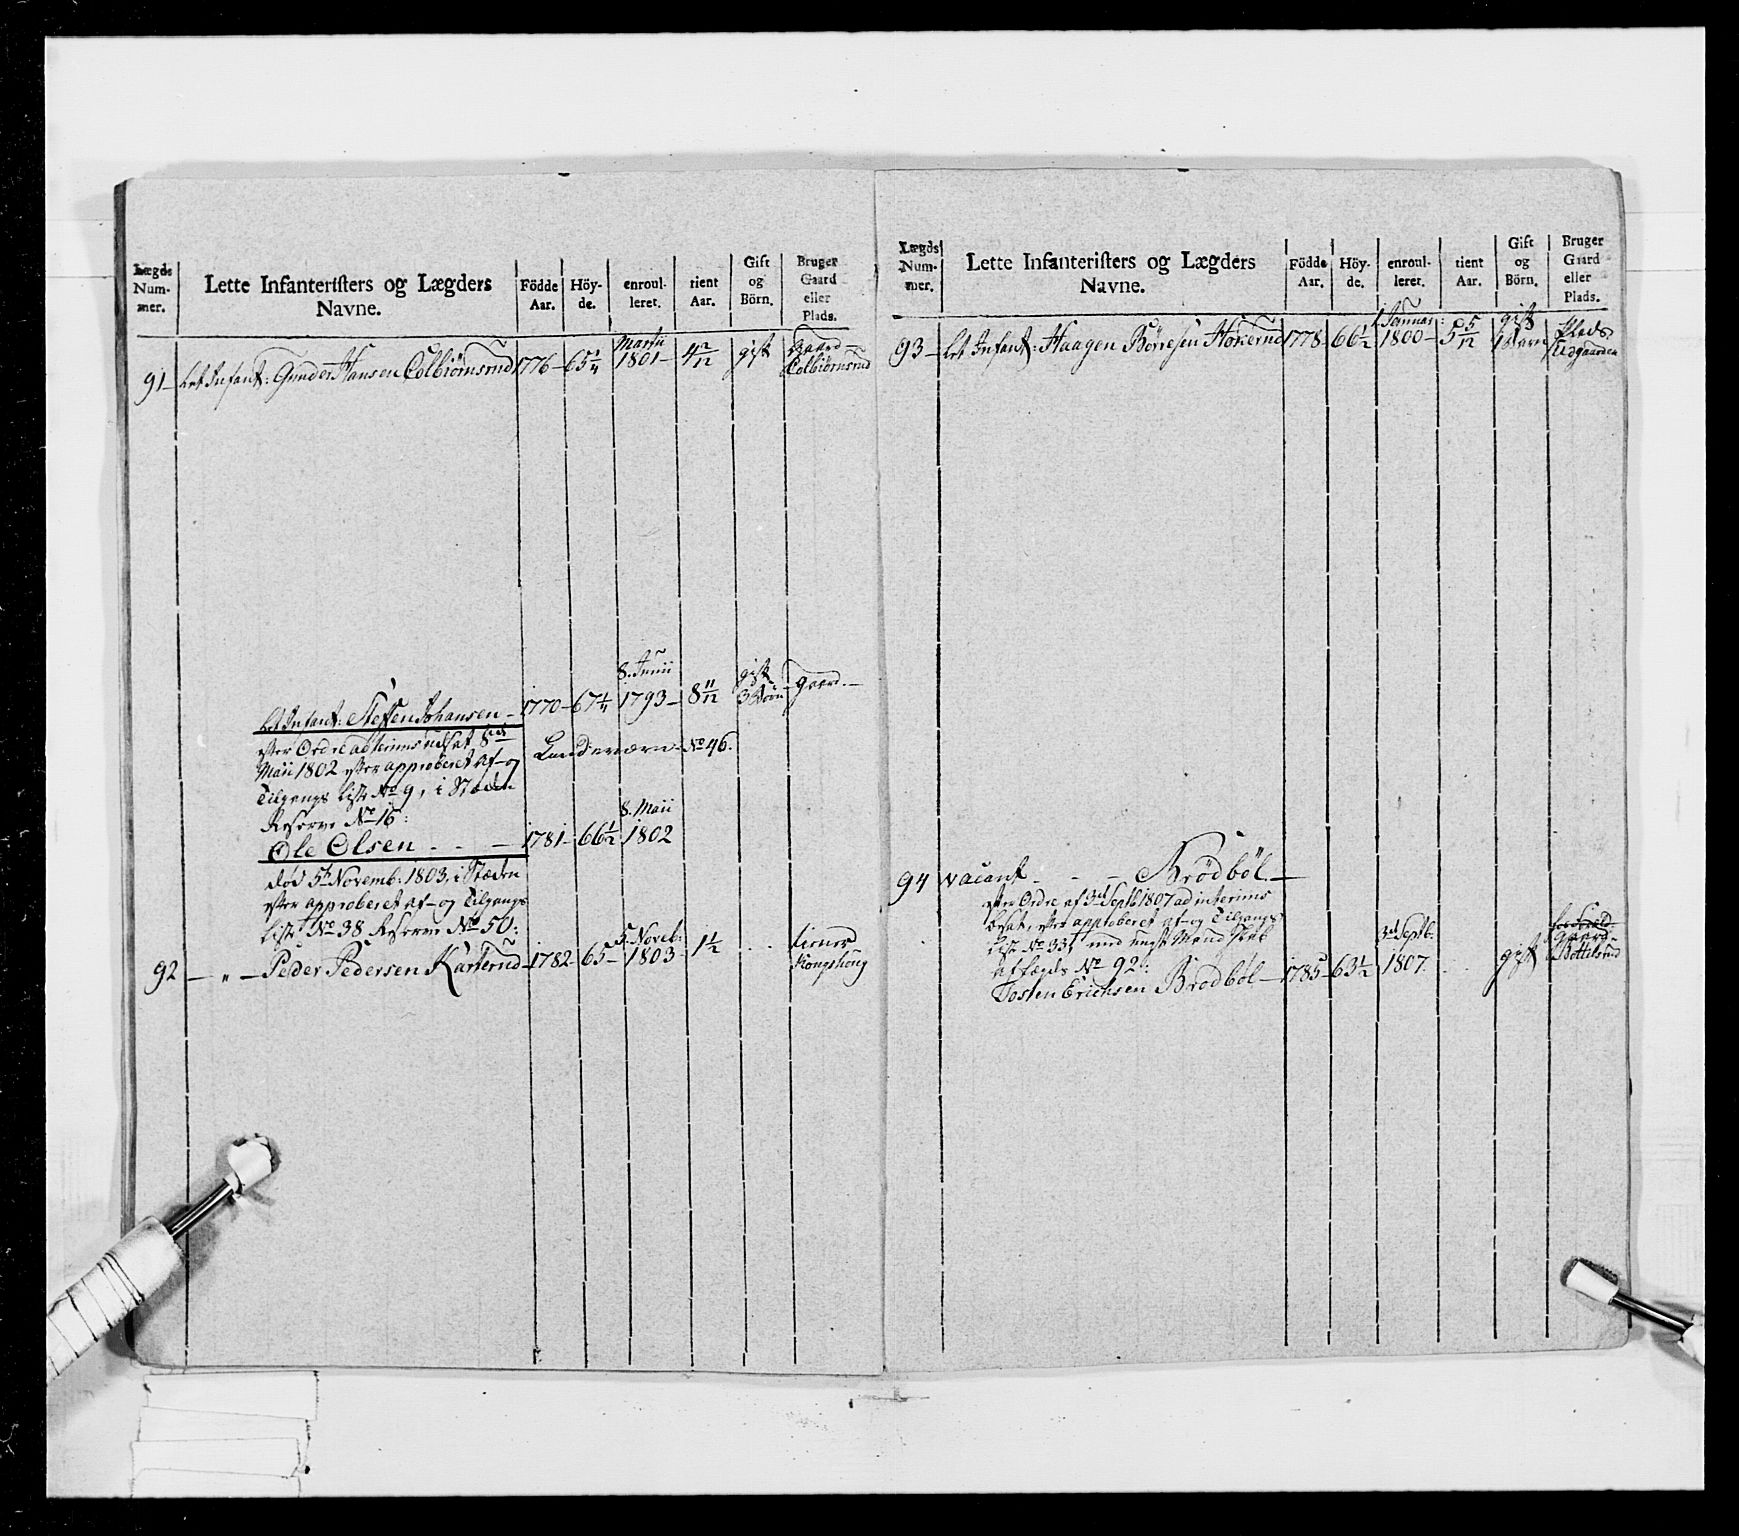 Lægds
Num-
mer.
Lette Infanteristers og Lægders
Navne.
Födde
Aar.
Höy-
de.
enroul-
leret.
tient
Aar.
Gift
og
Börn.
Bruger
Gaard
eller
Plads.
91 - Let Infant: Gunder Hansen Colbiörnsrud 1776 - 65 1/4 Martii 1801 - 4 2/12 gift Gaard - Colbiörnsrud
Let Infant: Steffen Johansen - 1770 - 67 1/4 8. Junii 1793 - 8 11/12 gift 3 Börn - Gaard. -
efter Ordre ad interims udsat 8de
Landeværn No 46.
Maii 1802 efter approberet Af- og
Tilgangs Liste No 9, i Stæden
Reserve No 16:
Ole Olsen - - - 1781 - 66 1/2 8. Maii 1802
död 5te Novemb: 1803, i Stæden
efter approberet Af- og Tilgangs
Liste No 38 Reserve No 50:
92 - " - Peder Pedersen Karterud - 1782 - 65 - 5. Noveb: 1803 - 1 1/2 - - tiener Kongshoug
Lægds
Num-
mer.
Lette Infanteristers og Lægders
Navne.
Födde
Aar.
Höy-
de.
enroul-
leret.
tient
Aar.
Gift
og
Börn.
Bruger
Gaard
eller
Plads.
93 - Let Infant: Haagen Börresen 1778 - 66 1/2 1 Januar: 1800 - 5 5/12 gift 1 Barn Plads
94 vacant - - - Brödböl. -
efter Ordre af 3de Septb 1807 ad interims
besat, efter approberet af- og Tilgangs
Liste No 33, med ungt Mandskab
No 92:
Tosten Erichsen Brödböl - 1785 - 63 1/2 3de Septb. 1807. - - gift Gaard - Bottilsrud